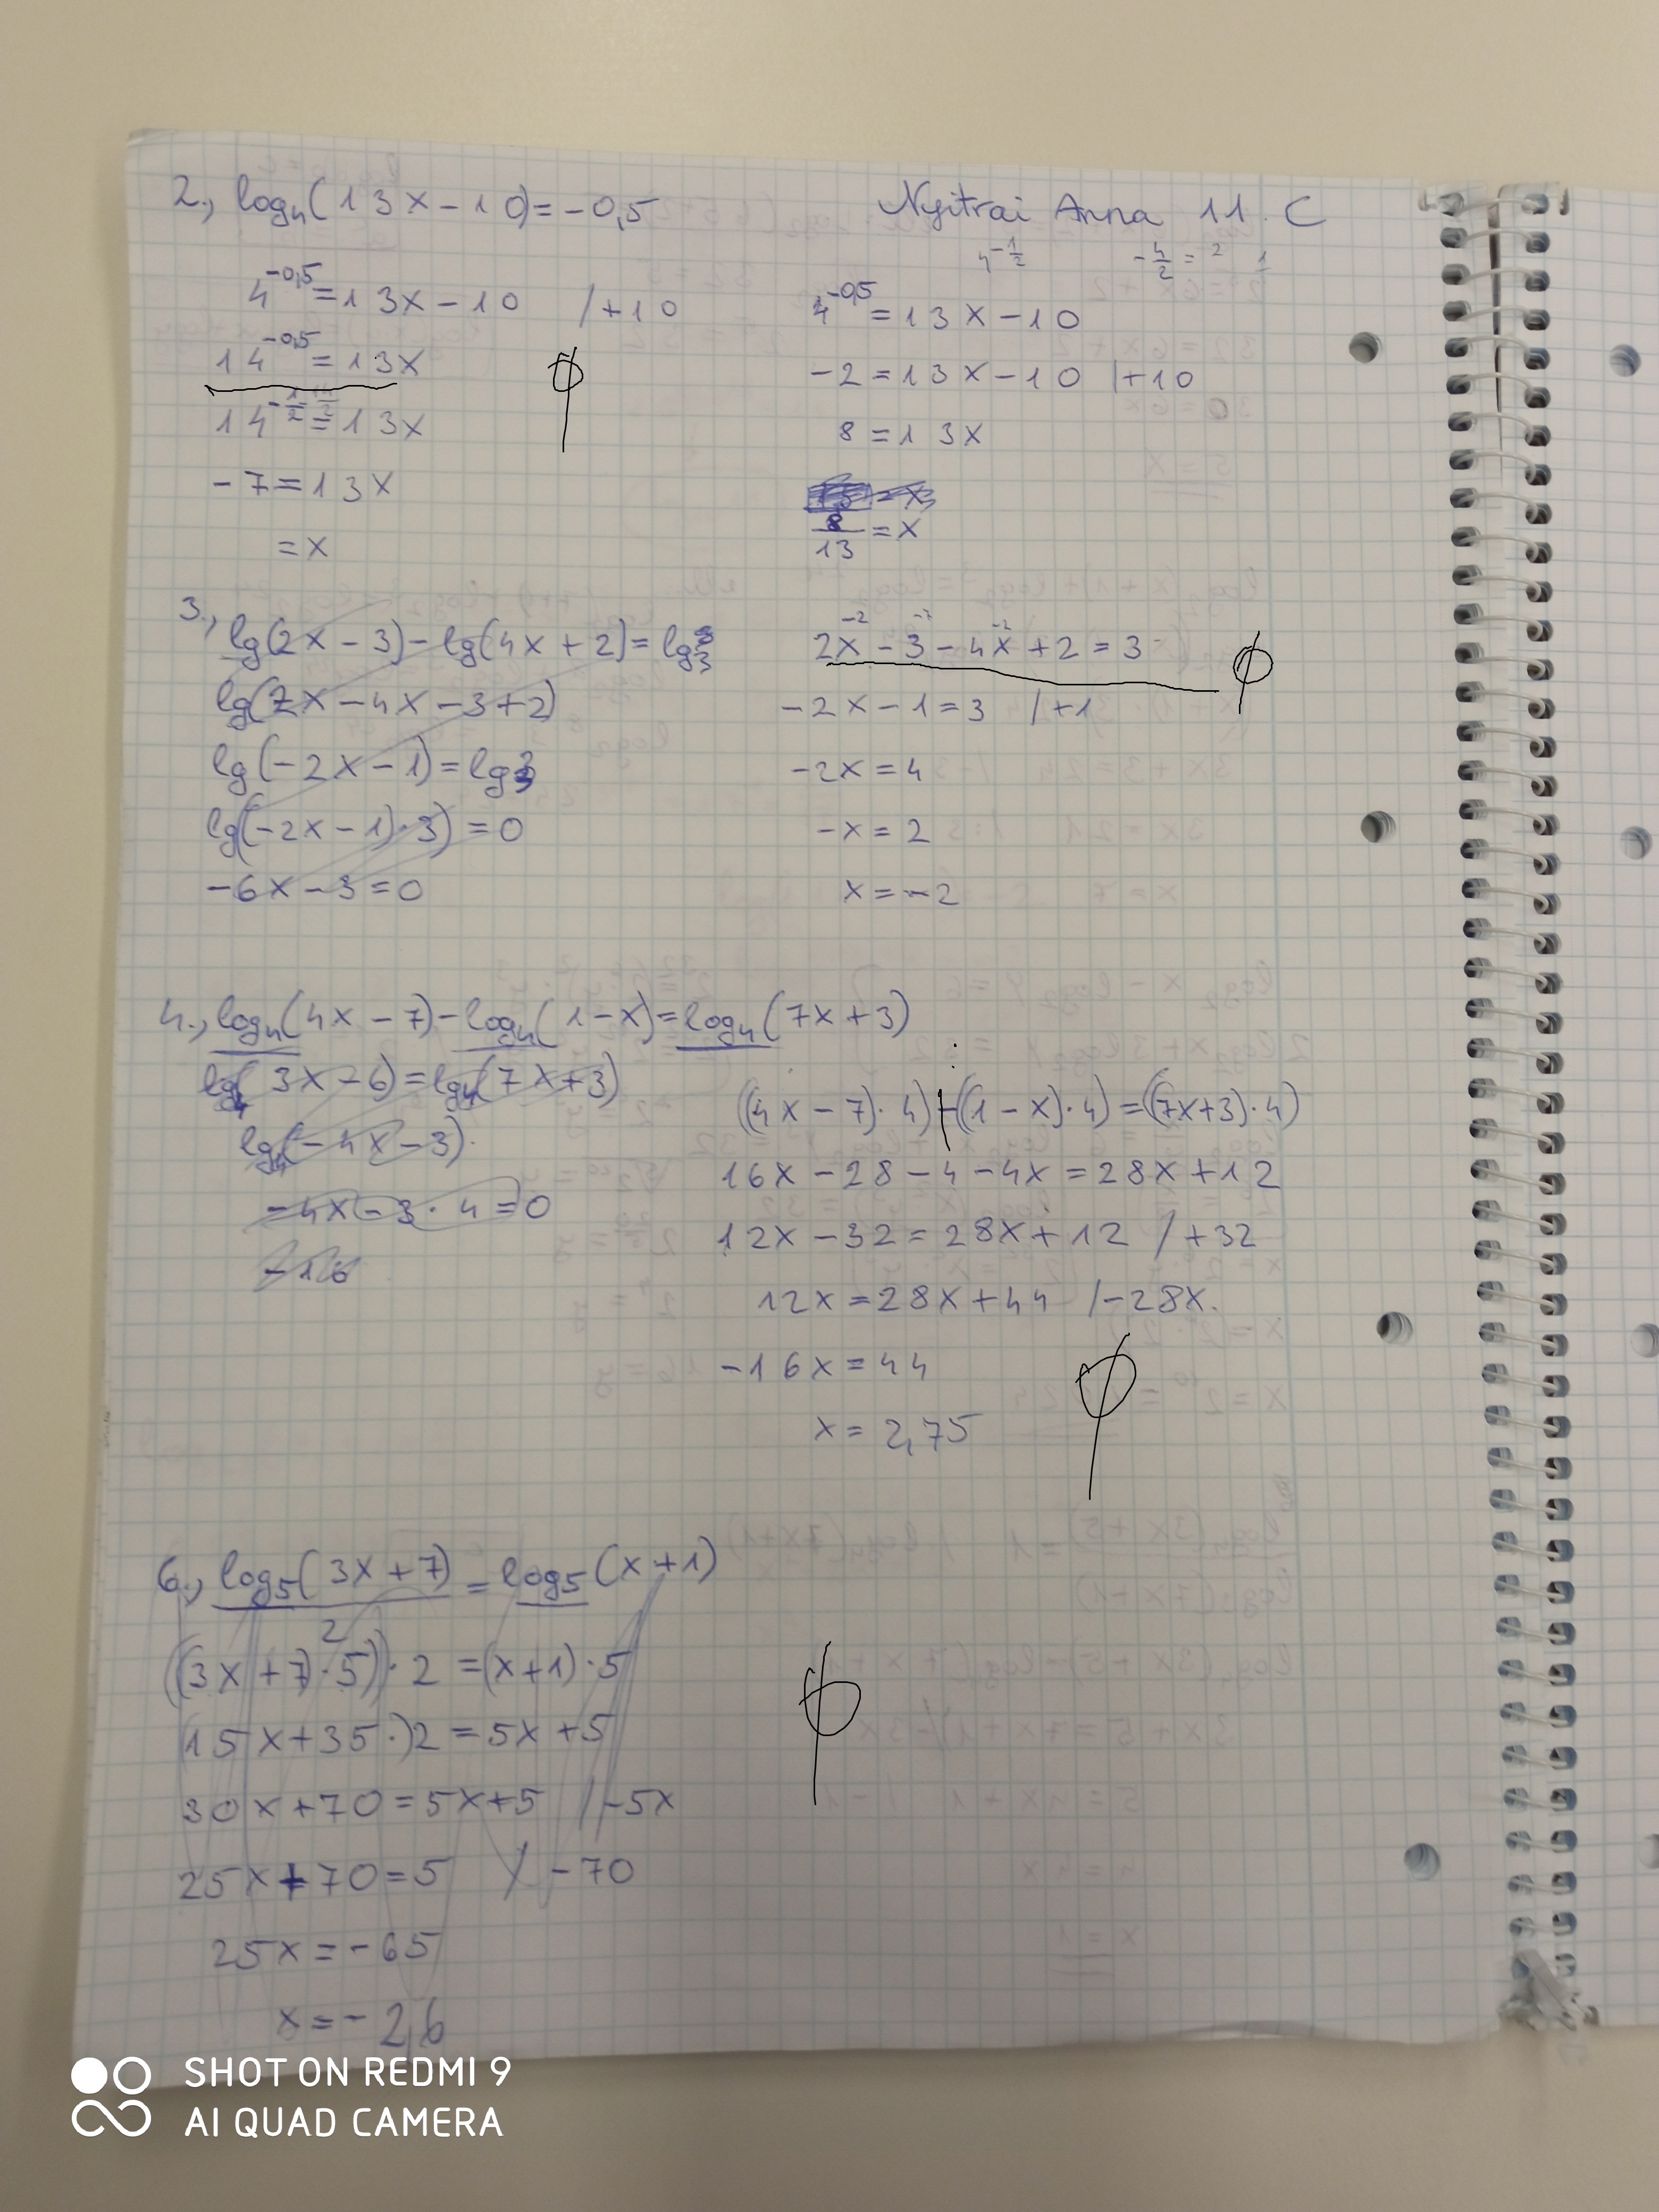 2., log₄(13x-10)=-0,5
Nyitrai Anna 11. C
4^-½ -4/2 = 2
4^-0,5=13x-10 /+10
14^-0,5=13x
14^-½=13x
-7=13x
=x
4^-0,5=13x-10
-2=13x-10 /+10
8=13x
8/13=x
3., lg(2x-3)-lg(4x+2)=lg3
lg(2x-4x-3+2)
lg(-2x-1)=lg3
lg(-2x-1)·3)=0
-6x-3=0
2x-3-4x+2=3
-2x-1=3 /+1
-2x=4
-x=2
x=-2
4., log₄(4x-7)-log₄(1-x)=log₄(7x+3)
lg₄(3x-6)=lg₄(7x+3)
lg₄(-4x-3)
-4x-3·4=0
-16
((4x-7)·4)-((1-x)·4)=(7x+3)·4)
16x-28-4-4x=28x+12
12x-32=28x+12 /+32
12x=28x+44 /-28x.
-16x=44
x=2,75
6., log₅(3x+7)/2=log₅(x+1)
((3x+7)·5))·2=(x+1)·5
(15x+35·)2=5x+5
30x+70=5x+5 /-5x
25x+70=5 /-70
25x=-65
x=-2,6
SHOT ON REDMI 9
AI QUAD CAMERA